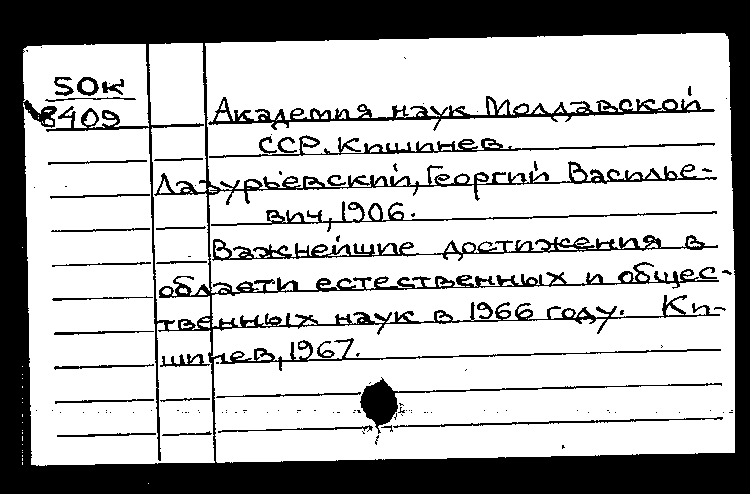 50к
8409
Академия наук Молдавской
ССР. Кишинев.
Лазурьевский, Георгий Василье-
вич, 1906.
Важнейшие достижения в
области естественных и общес-
твенных наук в 1966 году. Ки-
шинев, 1967.